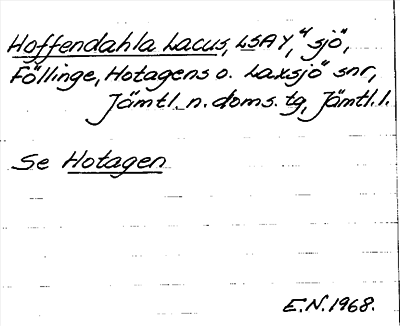 Hoffendahla Lacus, LSAY, "sjö",
Föllinge, Hotagens o. Laxsjö snr,
Jämtl. n. doms. tg, Jämtl. l.
Se Hotagen
E.N. 1968.